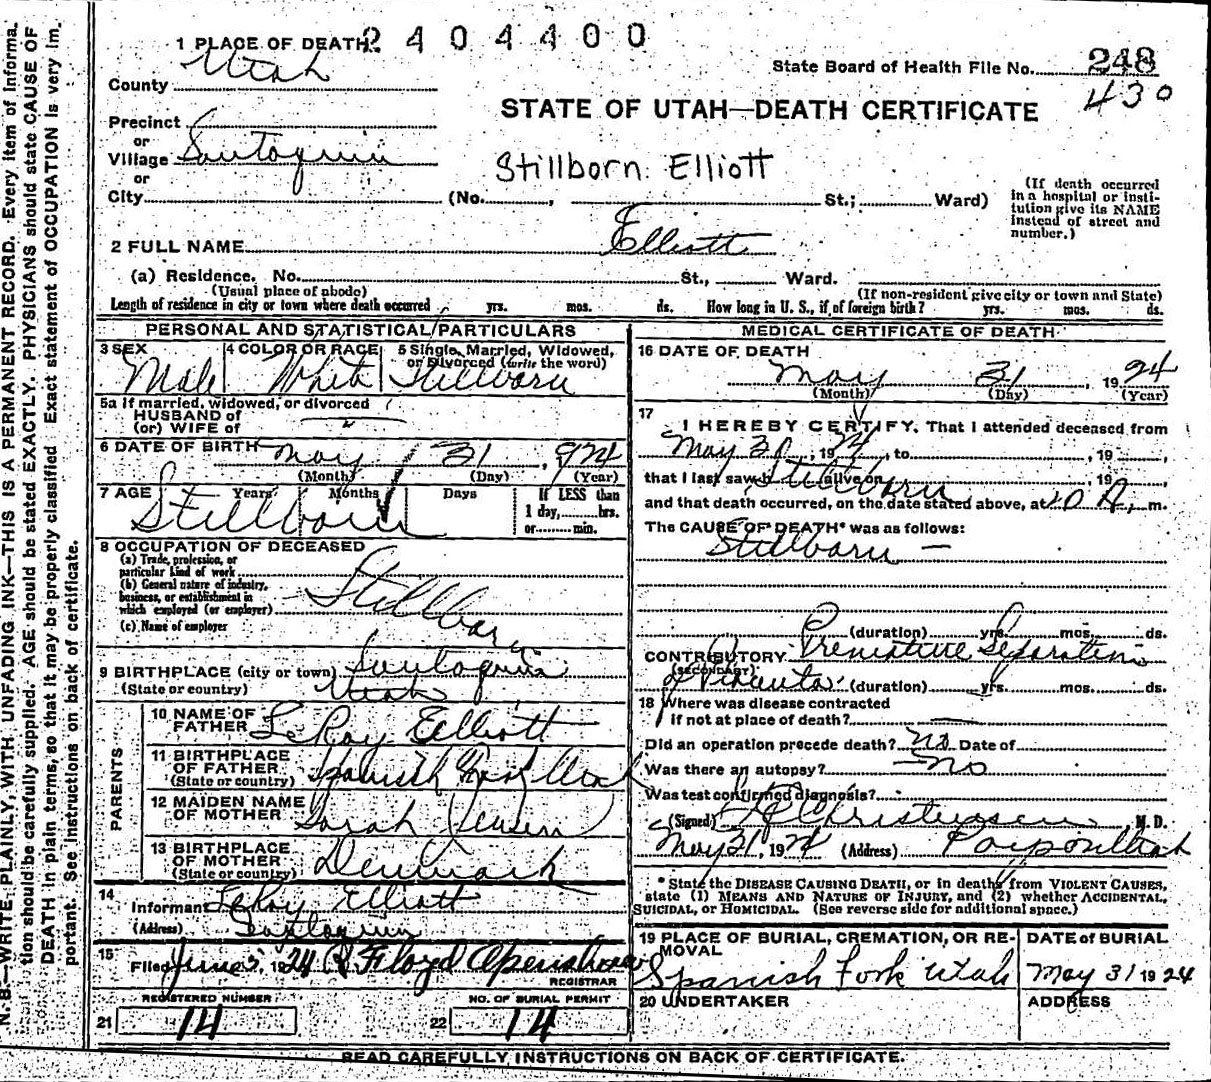 1 PLACE OF DEATH 2404400
County Utah
State Board of Health File No. 248
430
STATE OF UTAH—DEATH CERTIFICATE
Precinct
or
Village Santaquin
Stillborn Elliott
or
City (No. , St.; Ward)
(If death occurred
in a hospital or insti-
tution give its NAME
instead of street and
number.)
2 FULL NAME Elliott
(a) Residence. No. St., Ward.
(Usual place of abode) (If non-resident give city or town and State)
Length of residence in city or town where death occurred yrs. mos. ds. How long in U. S., if of foreign birth? yrs. mos. ds.
PERSONAL AND STATISTICAL PARTICULARS
3 SEX Male
4 COLOR OR RACE White
5 Single, Married, Widowed,
or Divorced (write the word)
Stillborn
5a If married, widowed, or divorced
HUSBAND of
(or) WIFE of
6 DATE OF BIRTH May 31, 924
(Month) (Day) (Year)
7 AGE Years Months Days If LESS than
1 day, hrs.
or min.
Stillborn
8 OCCUPATION OF DECEASED
(a) Trade, profession, or
particular kind of work
(b) General nature of industry,
business, or establishment in
which employed (or employer)
(c) Name of employer
Stillborn
9 BIRTHPLACE (city or town) Santaquin
(State or country) Utah
PARENTS
10 NAME OF
FATHER LeRoy Elliott
11 BIRTHPLACE
OF FATHER Spanish Fork Utah
(State or country)
12 MAIDEN NAME
OF MOTHER Sarah Jensen
13 BIRTHPLACE
OF MOTHER Denmark
(State or country)
14
Informant LeRoy Elliott
(Address) Santaquin
15
Filed June 3, 1924 Floyd Openshaw
REGISTRAR
REGISTERED NUMBER NO. OF BURIAL PERMIT
21 14 22 14
MEDICAL CERTIFICATE OF DEATH
16 DATE OF DEATH
May 31, 1924
(Month) (Day) (Year)
17
I HEREBY CERTIFY, That I attended deceased from
May 30, 1924, to , 19
that I last saw h alive on , 19
Stillborn
and that death occurred, on the date stated above, at A. m.
The CAUSE OF DEATH* was as follows:
Stillborn —
(duration) yrs. mos. ds.
CONTRIBUTORY Premature Separation
(SECONDARY)
Placenta (duration) yrs. mos. ds.
18 Where was disease contracted
if not at place of death? —
Did an operation precede death? no Date of
Was there an autopsy? no
Was test confirmed diagnosis?
(Signed) Christensen M. D.
May 31, 1924 (Address) Payson Utah
* State the DISEASE CAUSING DEATH, or in deaths from VIOLENT CAUSES,
state (1) MEANS AND NATURE OF INJURY, and (2) whether ACCIDENTAL,
SUICIDAL, or HOMICIDAL. (See reverse side for additional space.)
19 PLACE OF BURIAL, CREMATION, OR RE-
MOVAL
Spanish Fork Utah
DATE of BURIAL
May 31 1924
20 UNDERTAKER
ADDRESS
READ CAREFULLY INSTRUCTIONS ON BACK OF CERTIFICATE.
N. B.—WRITE PLAINLY, WITH UNFADING INK—THIS IS A PERMANENT RECORD. Every item of informa-
tion should be carefully supplied. AGE should be stated EXACTLY. PHYSICIANS should state CAUSE OF
DEATH in plain terms, so that it may be properly classified. Exact statement of OCCUPATION is very im-
portant. See instructions on back of certificate.